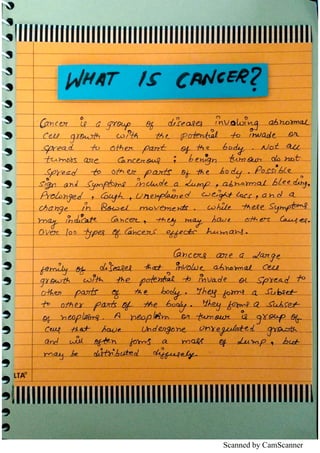 WHAT IS CANCER?
Cancer is a group of diseases involving abnormal
cell growth with the potential to invade or
spread to other part of the body. Not all
tumors are Cancerous; benign tumour do not
spread to other parts of the body. Possible
sign and symptoms include a lump, abnormal bleeding,
Prolonged, Cough, Unexplained weight loss, and a
change in Bowel movements. While these Symptoms
may indicate Cancer, they may have other Causes.
Over 100 types of Cancers affects humans.
Cancers are a large
family of diseases that involve abnormal cell
growth with the potential to invade or spread to
other parts of the body. They forms a Subset
to other parts of the body. They forms a Subset
of neoplasms. A neoplasm or tumour is group of
Cells that have Undergone Unregulated growth
and will often forms a mass of Lump, but
may be distributed diffusely.
LTA
Scanned by CamScanner